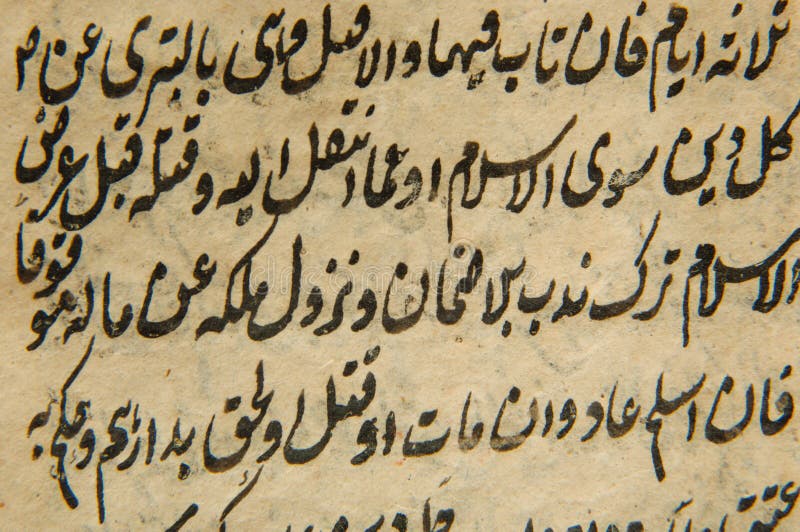 ثلاثة ايام فان تاب فيها والا قتل وهى بالتبرى عن
كل دين سوى الاسلام او عما انتقل اليه وقتله قبل عرض
الاسلام ترك ندب بلا ضمان ونزول ملكه عن ماله موقوفا
فان اسلم عاد وان مات او قتل او لحق بدارهم وحكم به